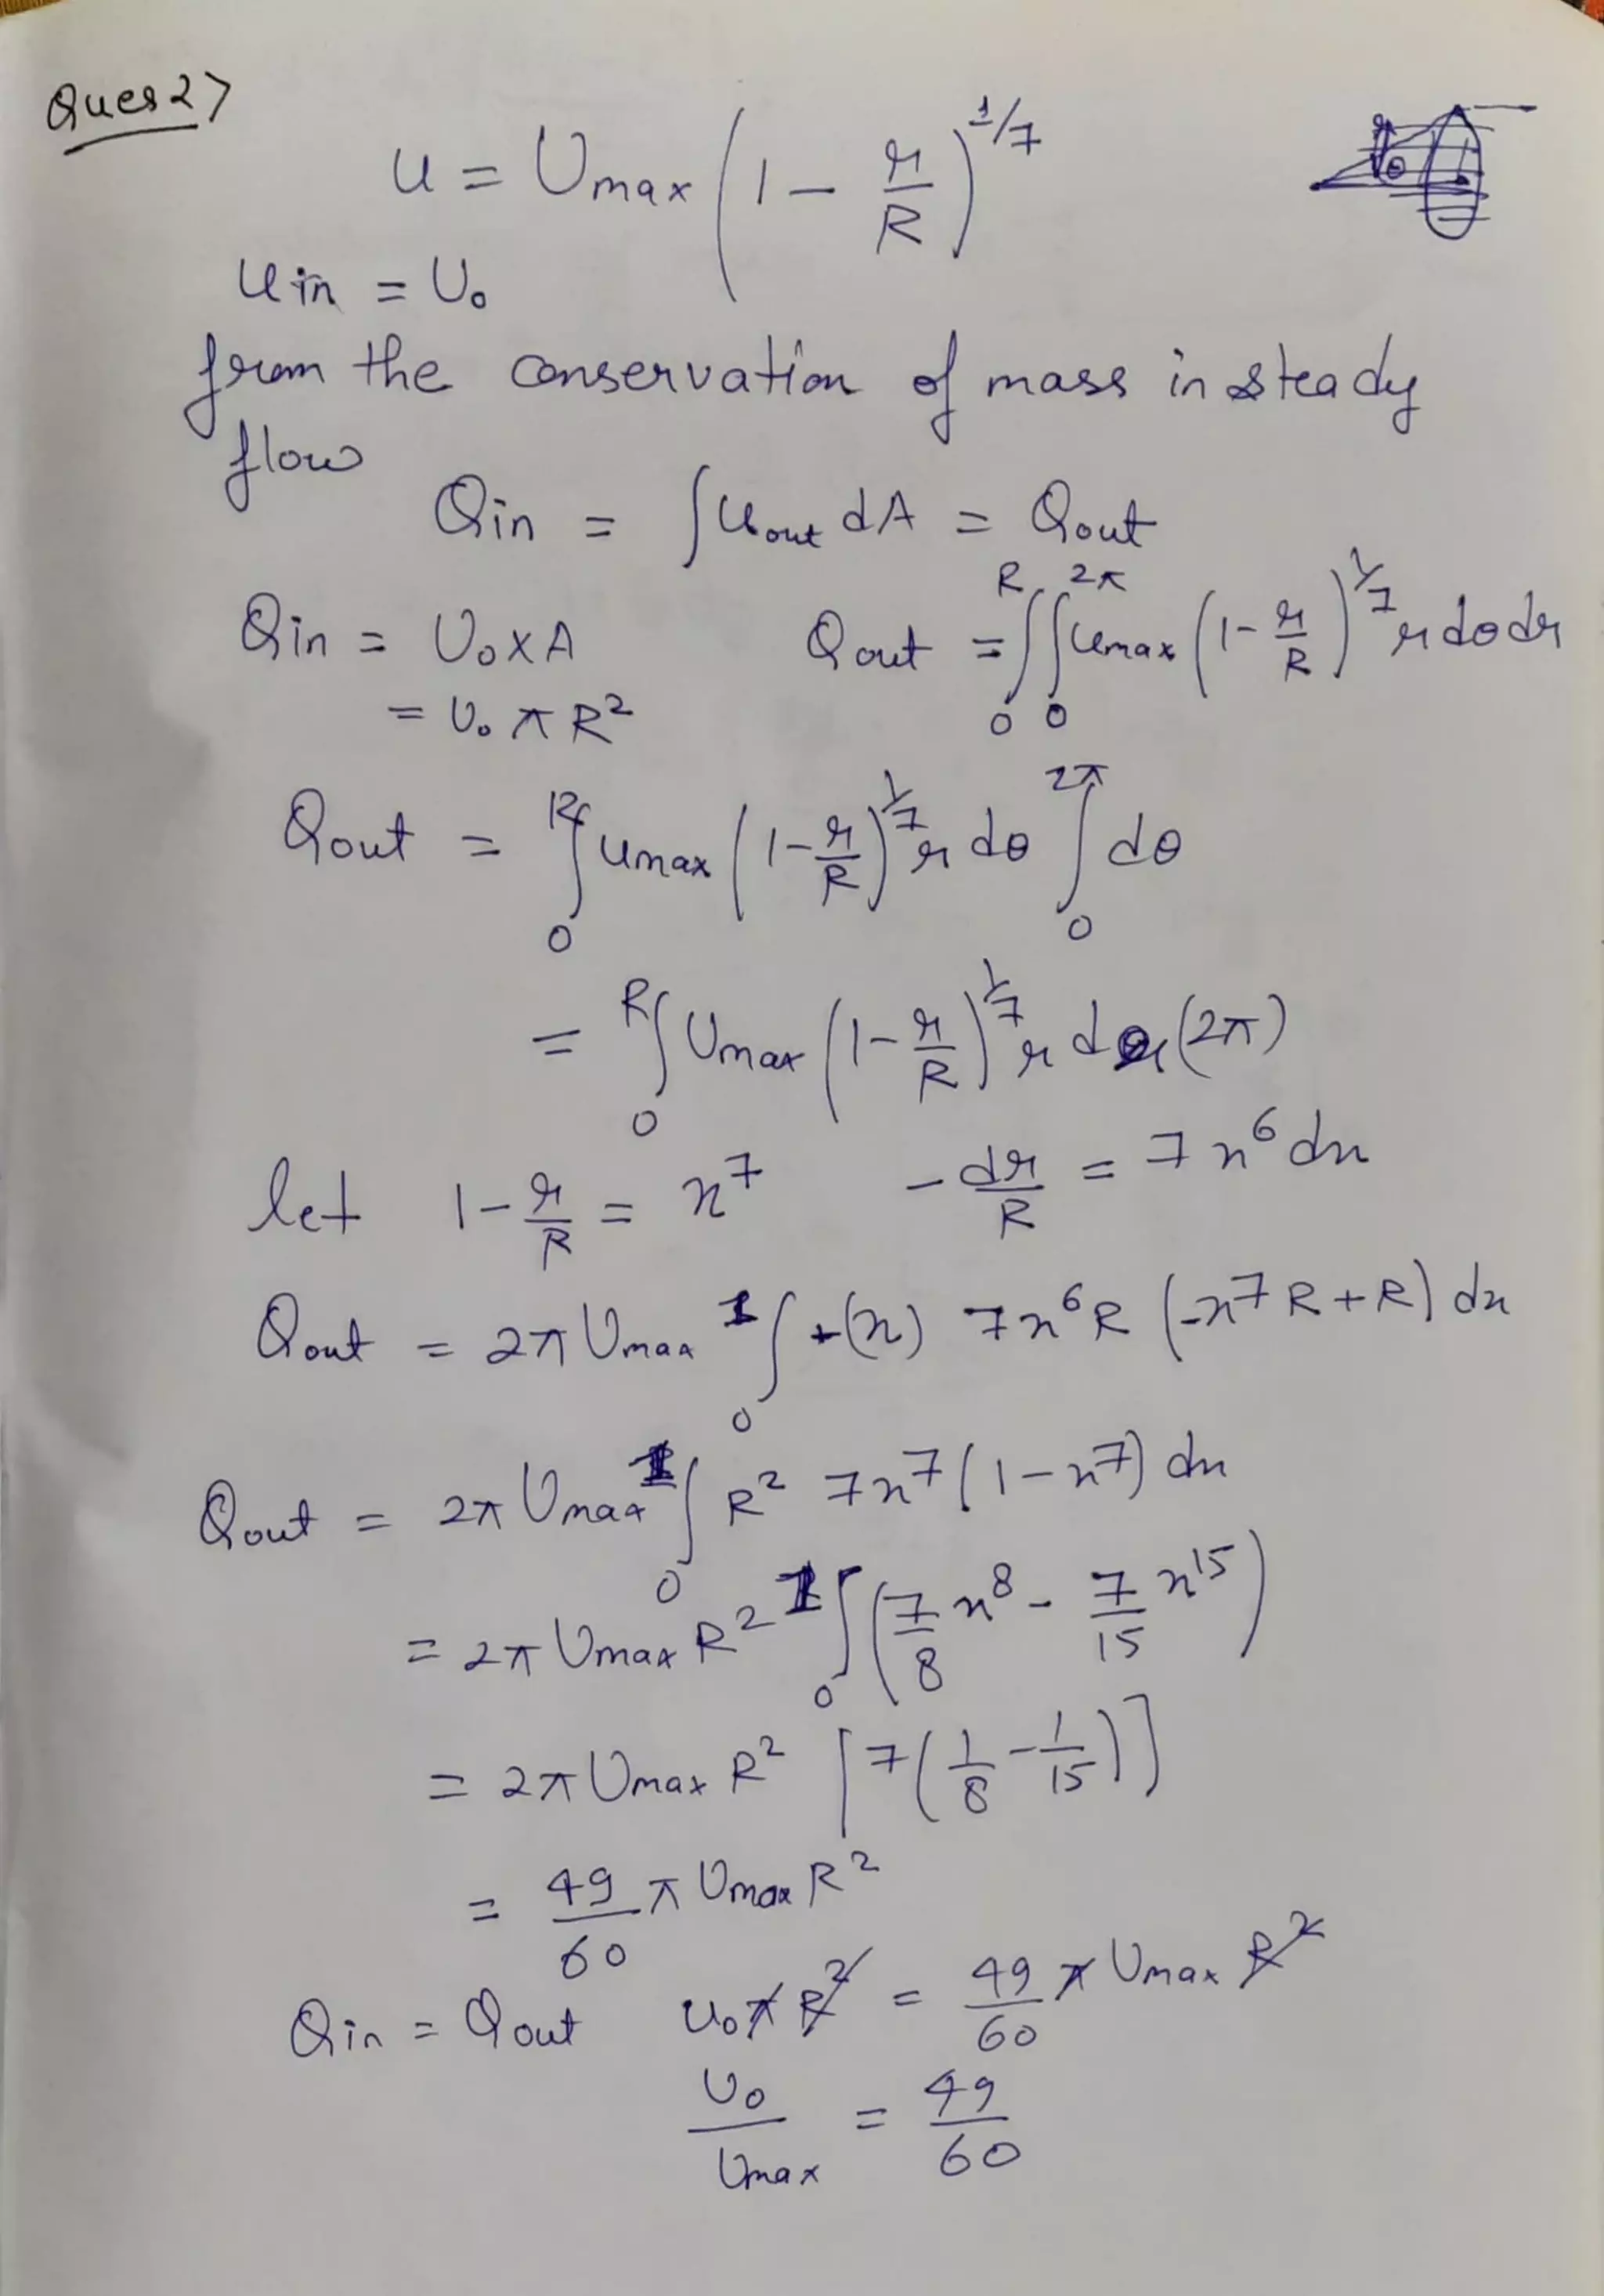 Ques 2>
u = Umax (1 - r/R)^1/7
uin = U₀
from the conservation of mass in steady
flow
Qin = ∫ uout dA = Qout
Qin = U₀ x A Qout = ∫₀^R ∫₀^2π umax (1 - r/R)^1/7 r dθ dr
= U₀ π R²
Qout = ∫₀^R umax (1 - r/R)^1/7 r dθ ∫₀^2π dθ
= ∫₀^R Umax (1 - r/R)^1/7 r dr (2π)
let 1 - r/R = x⁷ - dr/R = 7x⁶ dx
Qout = 2π Umax ∫₀^1 +(x) 7x⁶R (-x⁷R + R) dx
Qout = 2π Umax ∫₀^1 R² 7x⁷ (1 - x⁷) dx
= 2π Umax R² ∫₀^1 (7/8 x⁸ - 7/15 x¹⁵)
= 2π Umax R² [7(1/8 - 1/15)]
= 49/60 π Umax R²
Qin = Qout u₀ π R² = 49/60 π Umax R²
U₀/Umax = 49/60